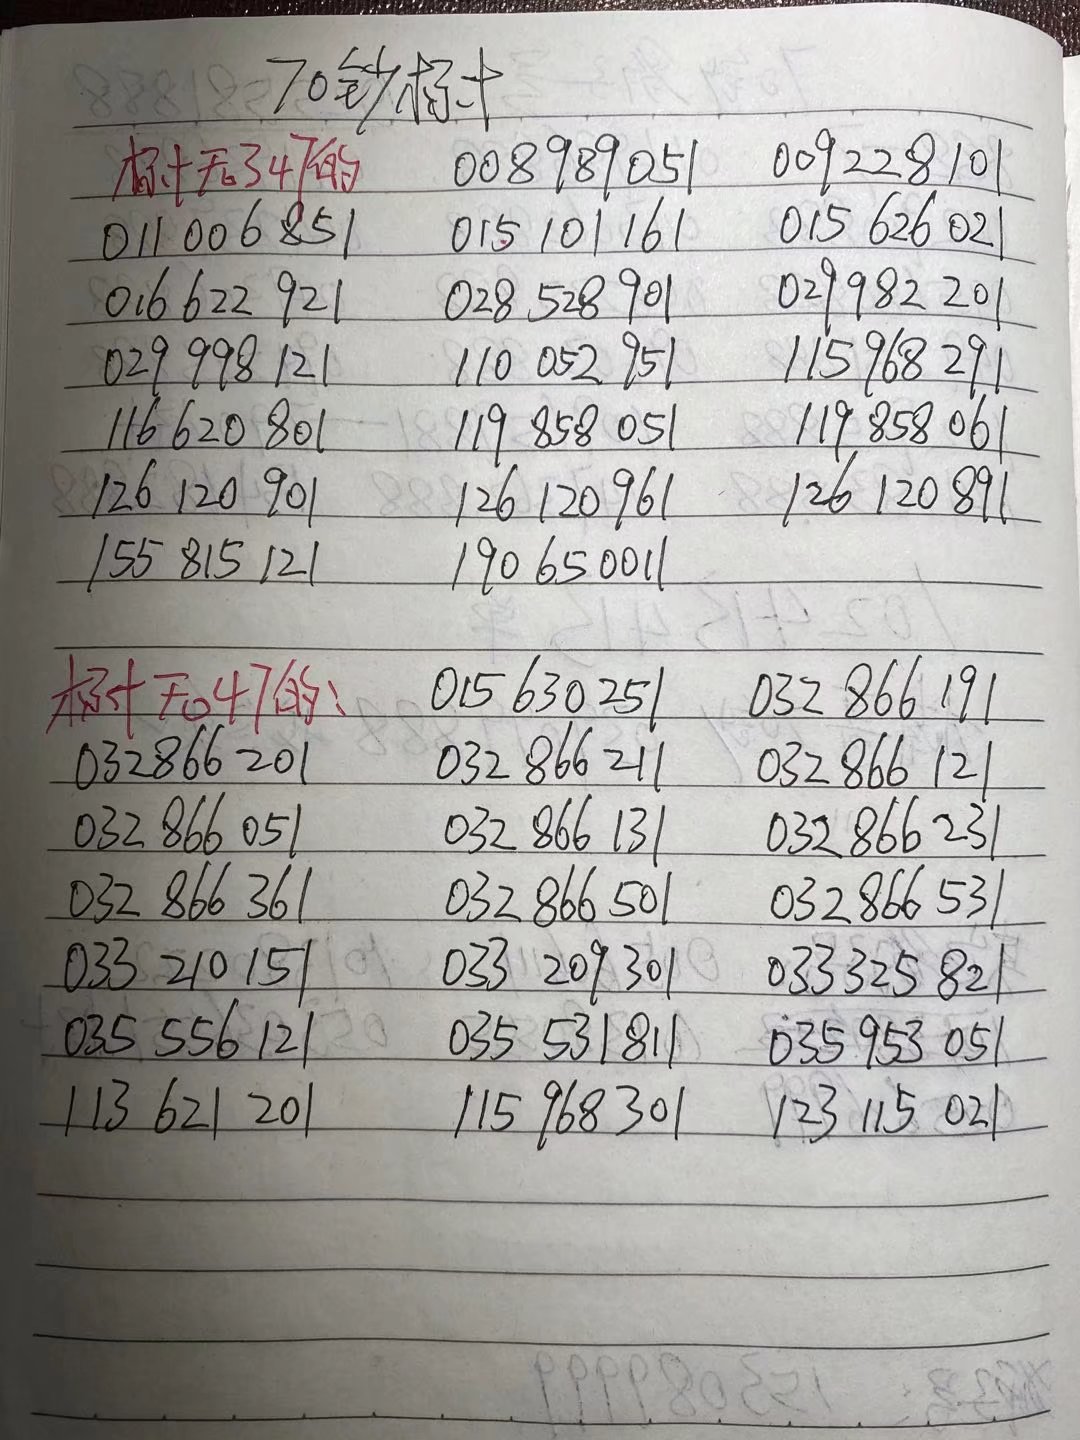 70钞标十
标十无347的 008989051 009228101
011006851 015101161 015626021
016622921 028528901 029982201
029998121 110052951 115968291
116620801 119858051 119858061
126120901 126120961 126120891
155815121 190650011
标十无047的: 015630251 032866191
032866201 032866211 032866121
032866051 032866131 032866231
032866361 032866501 032866531
033210151 033209301 033325821
035556121 035531811 035953051
113621201 115968301 123115021